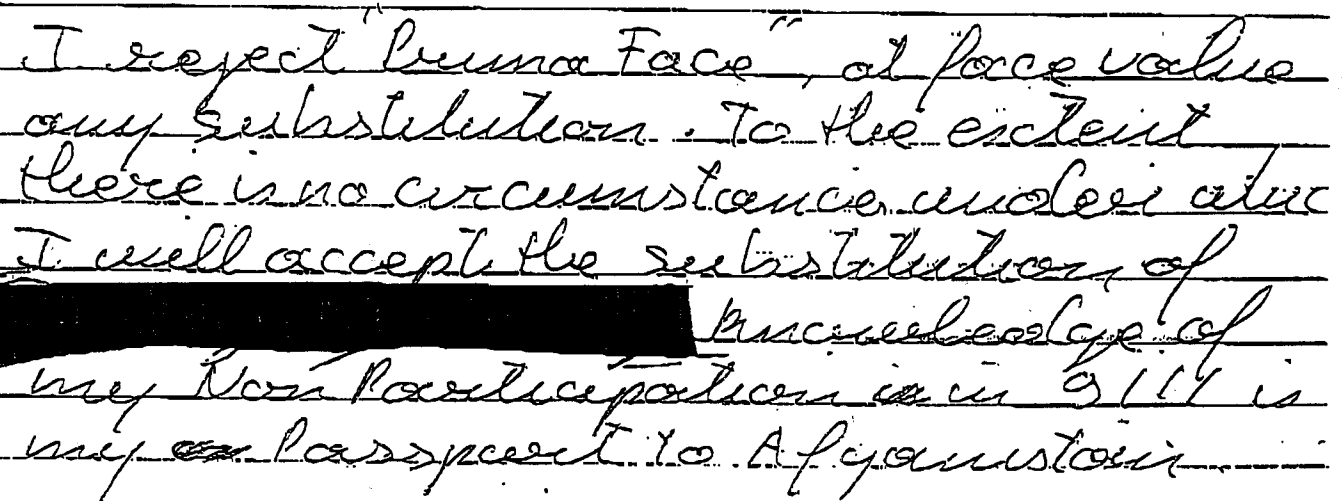 I reject "Pruma Face", at face value
any substitution. To the extent
there is no circumstance under whic
I will accept the substitution of
Knowledge of
my Non Participation in 9/11 is
my Passport to Afganistain